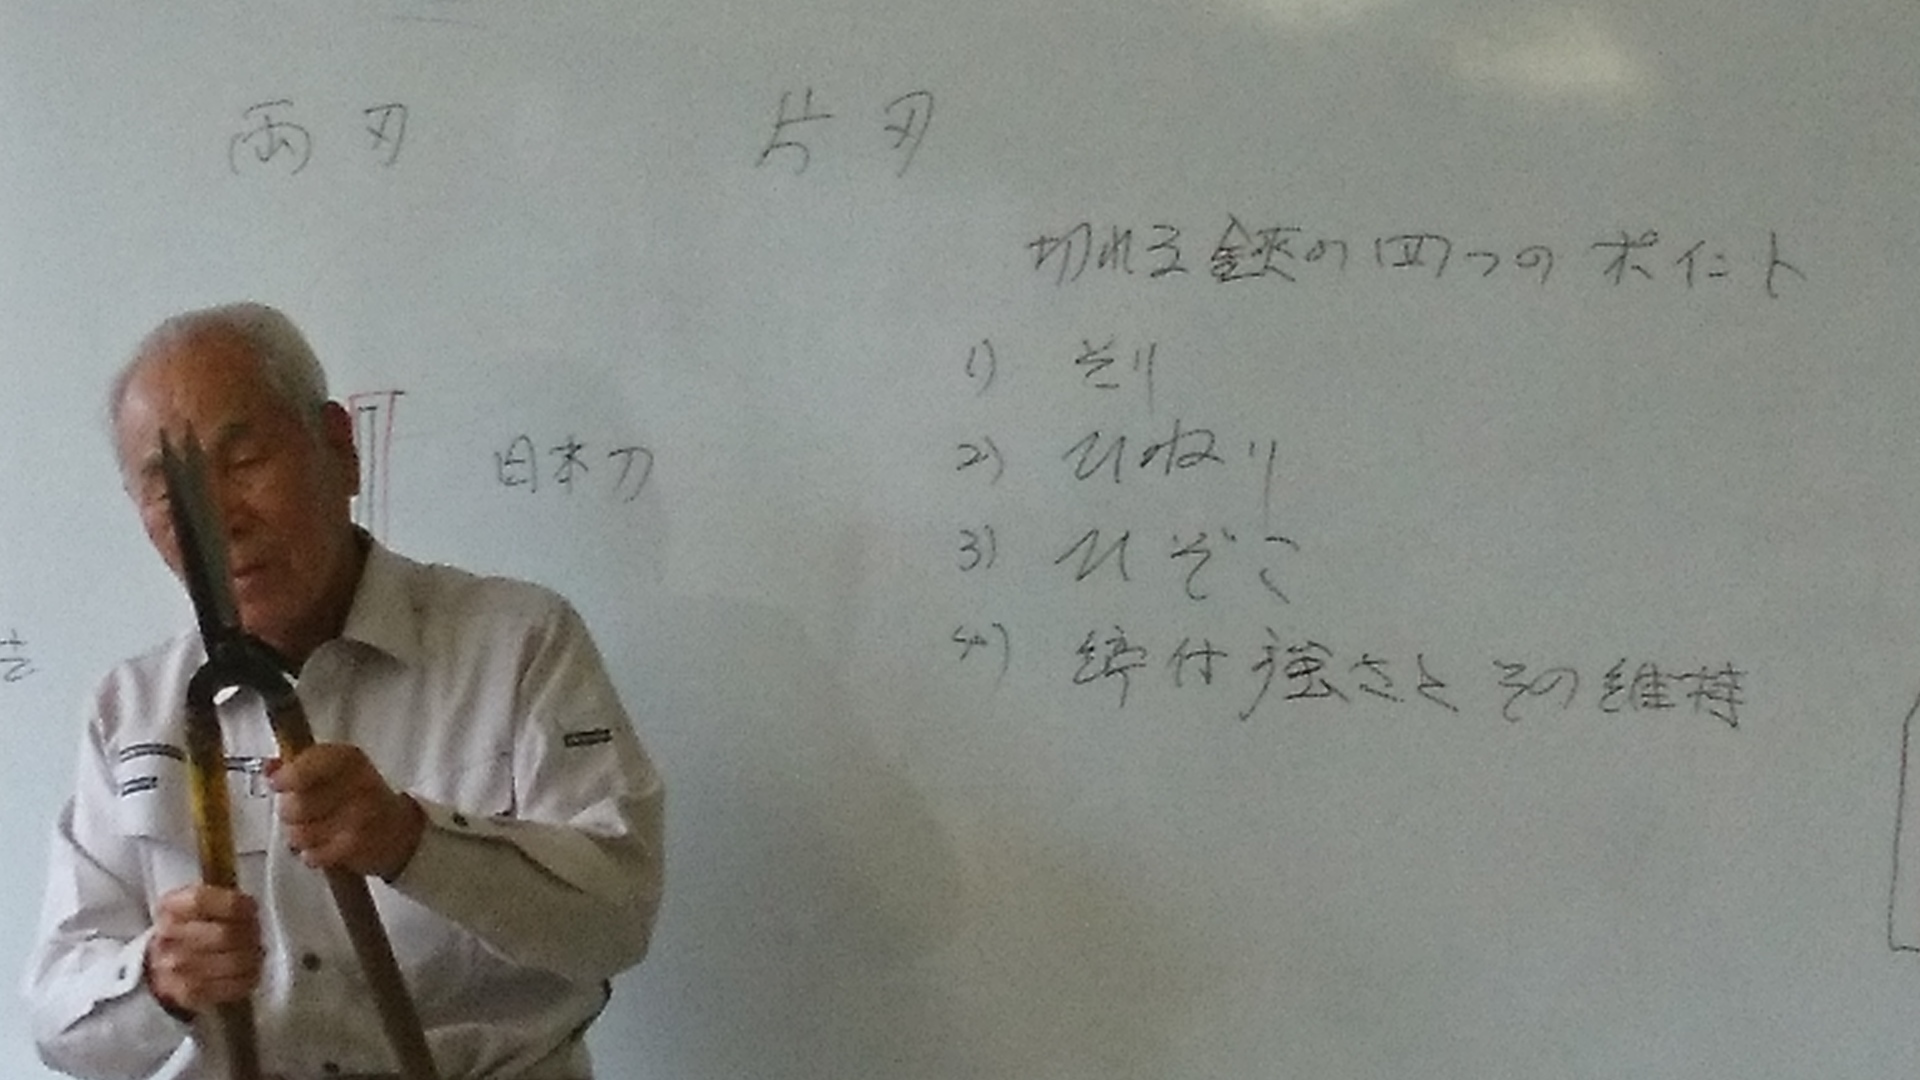 両刃
片刃
切れる鋏の四つのポイント
1) そり
2) ひねり
日本刀
3) ひぞこ
4) 締付強さとその維持